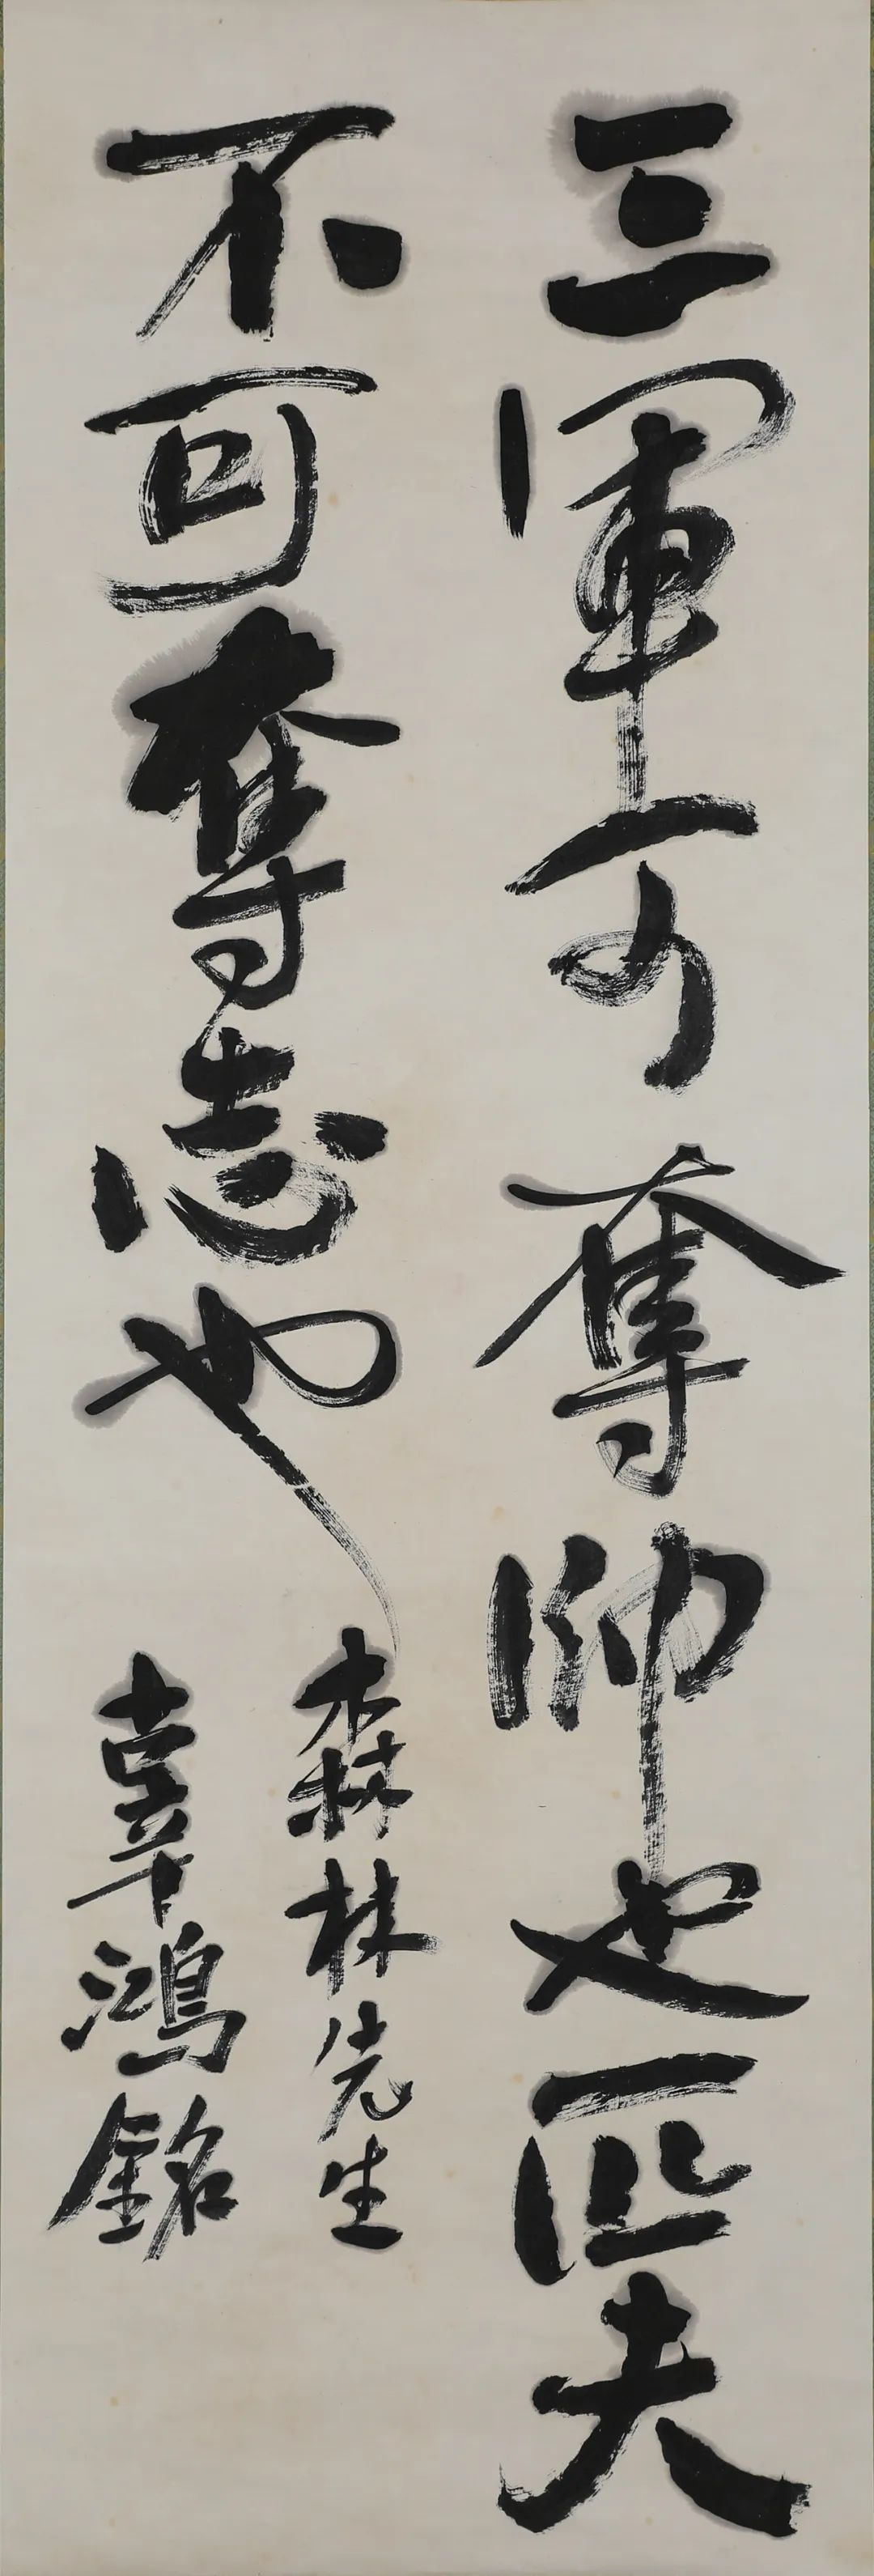 三軍可奪帥也匹夫
不可奪志也
森林先生
辜鴻銘